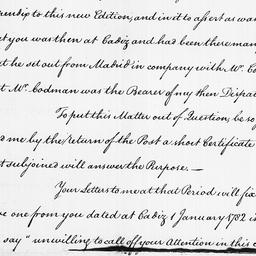 rendip to this new Edition, and in it to assert as wa
t you was then at Cadiz and had been there man
t he set out from Madrid in company with Mr. C
t Mr. Codman was the Bearer of my then Dispat
To put this Matter out of Question, be so
d me by the return of the Post a short Certificate
t subjoined will answer the Purpose.—
Your Letters to me at that Period will fix
ve one from you dated at Cadiz 1 January 1782 is
say "unwilling to call off your Attention in this c